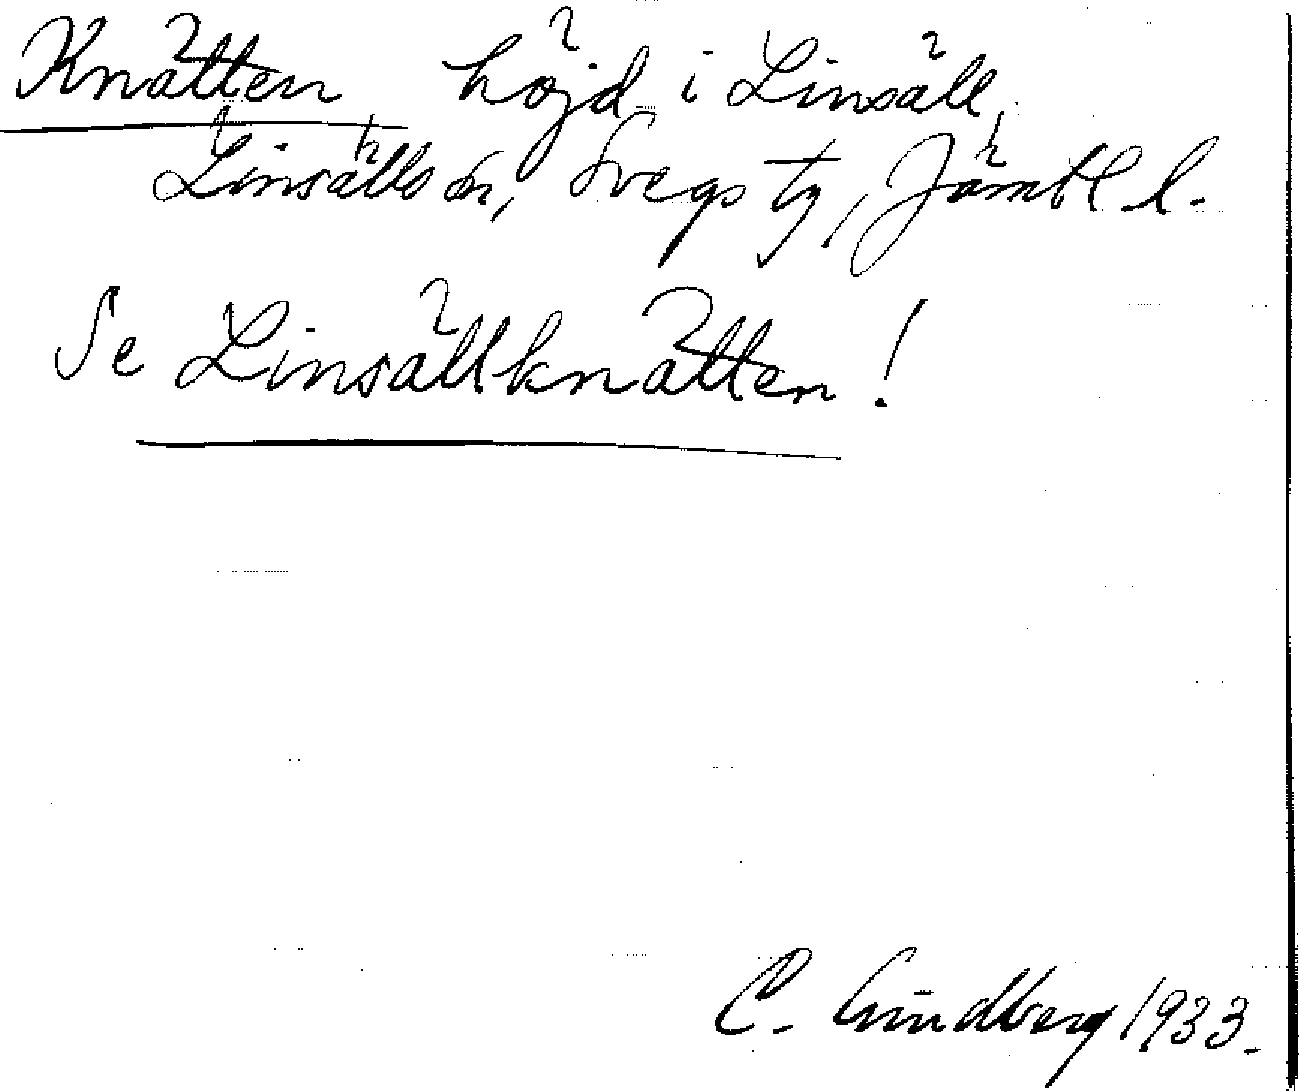 Knätten höjd i Linsäll,
Linsälls sn, Svegs tg, Jämtl l.
Se Linsällknätten!
C. Lindberg 1933.